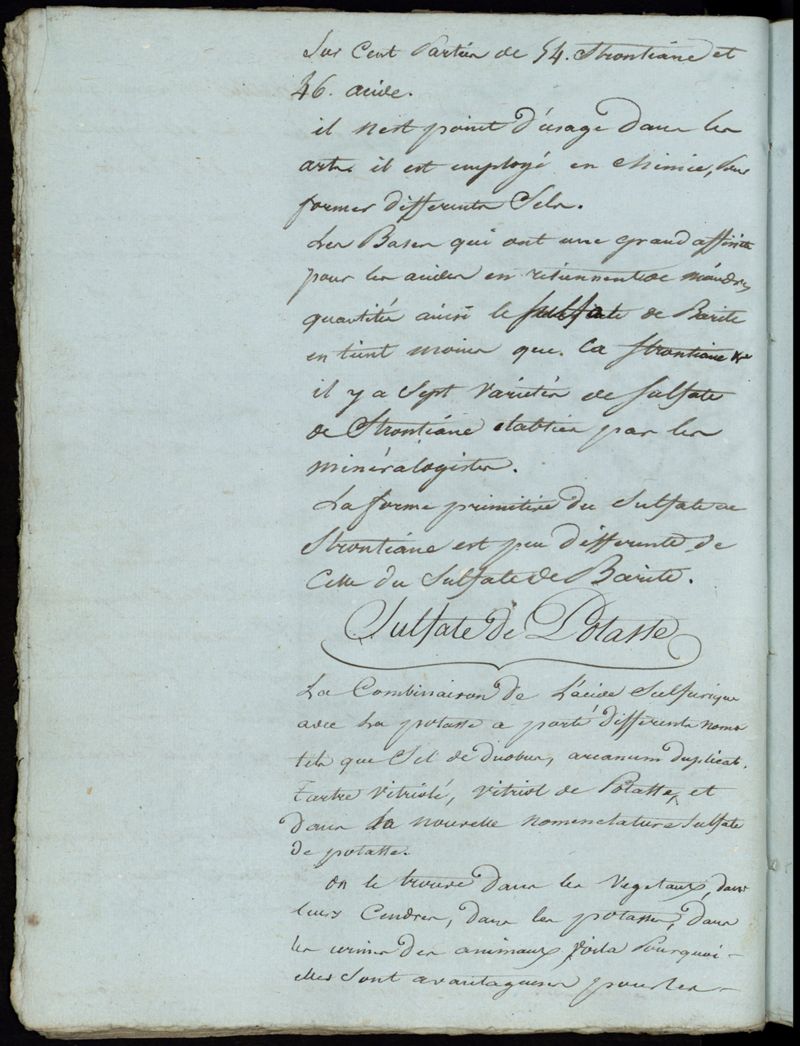 Sur Cent Parties de 54. Strontiane et
46. acide.
il n'est point d'usage dans les
arts il est employé en chimie, pour
former differents Sels.
Les Bases qui ont une grand affinité
pour les acides en retiennent de moindres
quantités ainsi le sulfate de Barite
en tient moins que Ca Strontiane &c
il y a Sept variétés de sulfate
de Strontiane établies par les
minéralogistes.
La forme primitive du Sulfate de
Strontiane est peu differente de
Celle du Sulfate de Barite.
Sulfate de Potasse
La Combinaison de L'acide Sulfurique
avec La potasse a porté differents noms
tels que Sel de duobus, arcanum duplicat.
Tartre vitriolé, vitriol de Potasse, et
dans la nouvelle nomenclature Sulfate
de potasse.
on le trouve dans les vegetaux, dans
leurs Cendres, dans les potasses, dans
les urines des animaux voila Pourquoi -
elles sont avantageuses pour les -